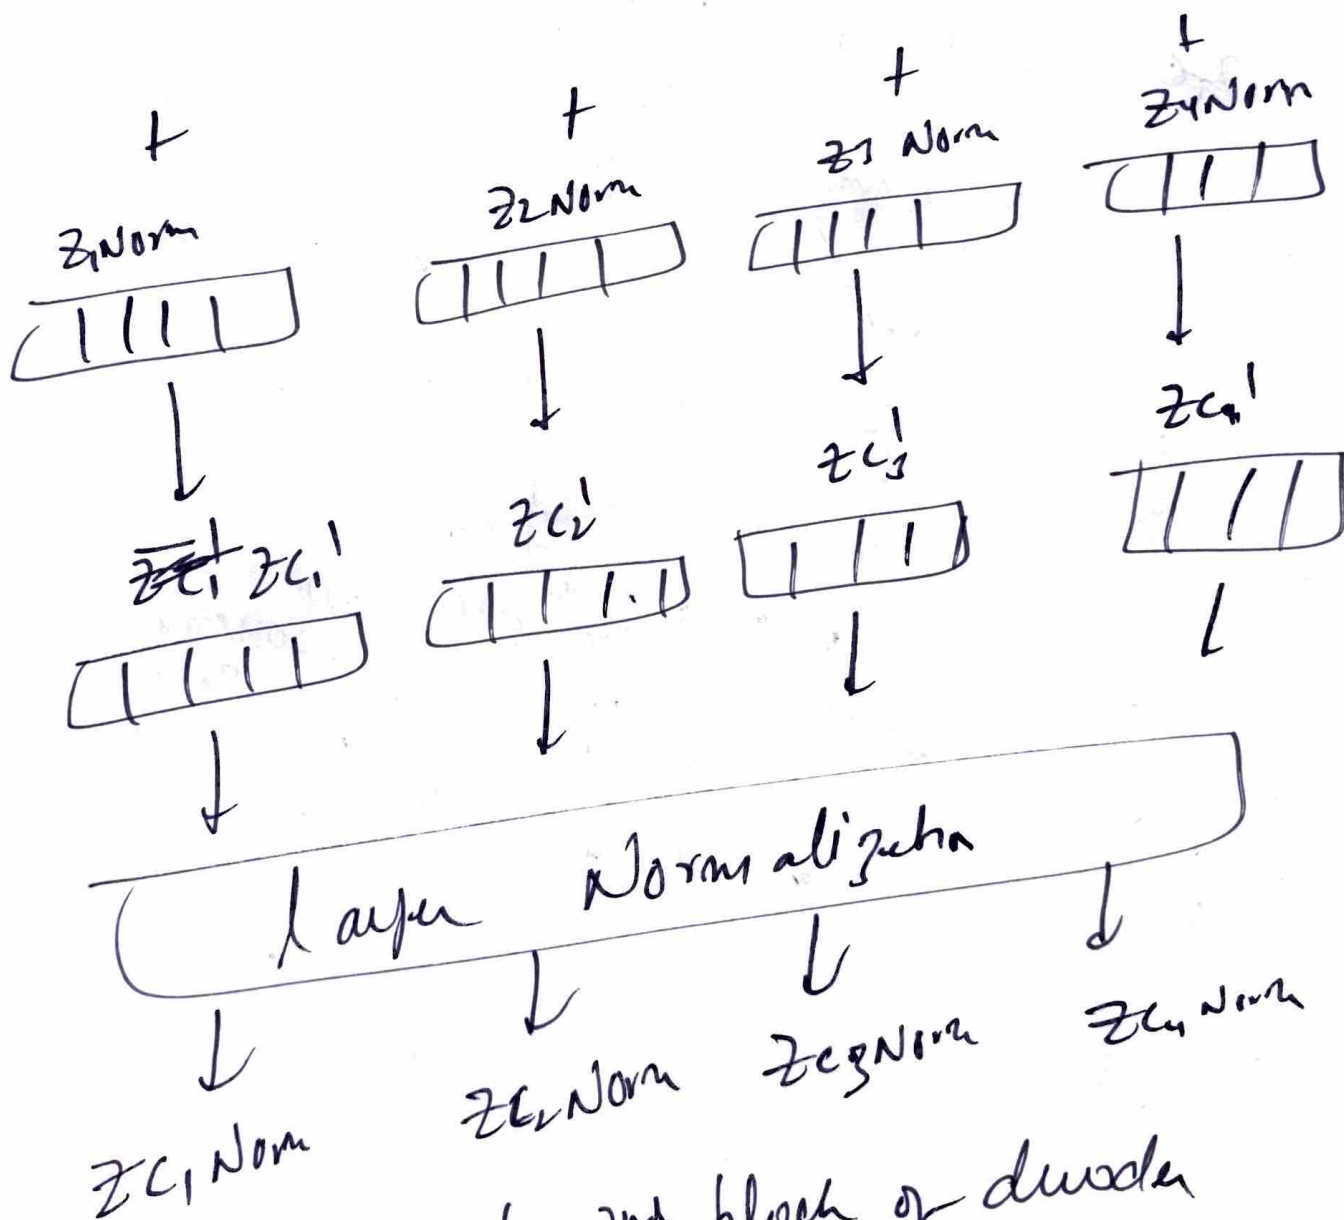 + + + +
Z1Norm Z2Norm Z3 Norm Z4Norm
ZC1' ZC2' ZC3' ZC4'
Layer Normalization
ZC1Norm ZC2Norm ZC3Norm ZC4Norm
2nd block of decoder